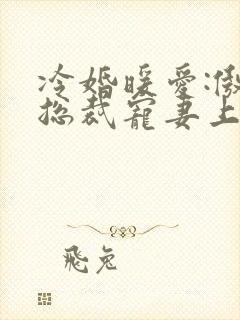 冷婚暖爱:傲
总裁宠妻上
飛兔